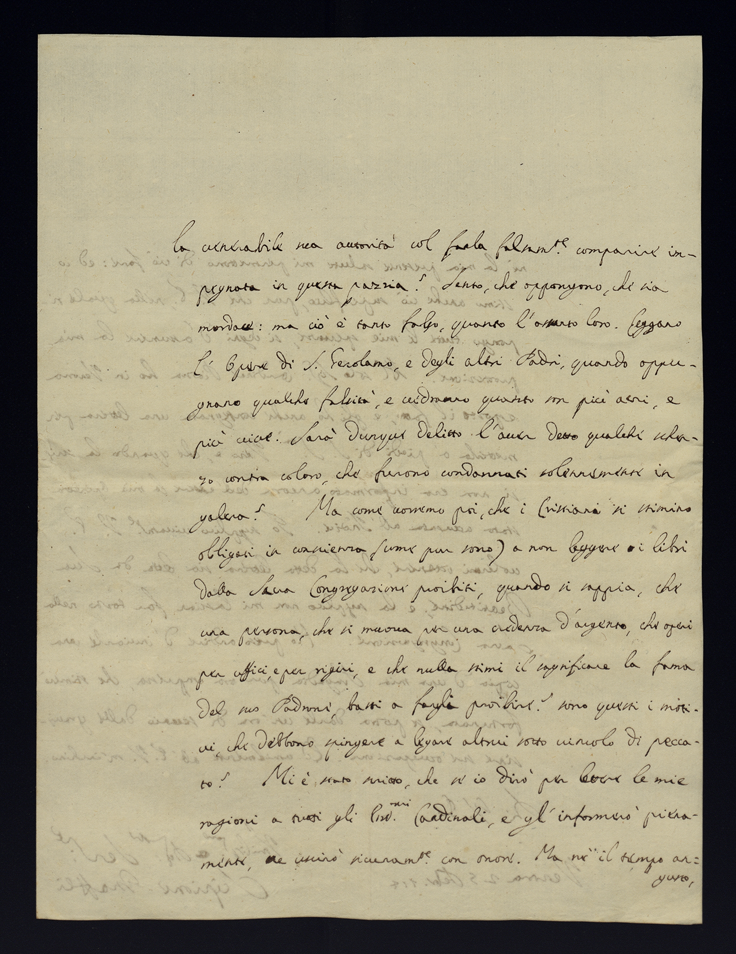 la venerabile sua autorità col farla falsam.te comparire im-
pegnata in questa pazzia? Sento, che oppongono, che sia
mordace: ma ciò è tanto falso, quanto l'assunto loro. Leggano
l'Opere di S. Gerolamo, e degli altri Padri, quando oppu-
gnano qualche falsità, e vedranno quanto son più acri, e
più vive. Sarà dunque delitto l'aver detto qualche scher-
zo contra coloro, che furono condannati solennemente in
galera? Ma come vorremo poi, che i Cristiani si stimino
obligati in conscienza (come pur sono) a non leggere i libri
dalla Sacra Congregazione proibiti, quando si sappia, che
una persona, che si muova per una credenza d'argento, che operi
per uffici e per rigiri, e che nulla stimi il sagrificare la fama
del suo Padrone, basti a fargli proibire? sono questi i moti-
vi che debbono spingere a legare altrui sotto vincolo di pecca-
to? Mi è stato scritto, che se io dirò per lettere le mie
ragioni a tutti gli Em.mi Cardinali, e gl'informerò piena-
mente, ne uscirò sicuram.te con onore. Ma nè il tempo an-
gusto,